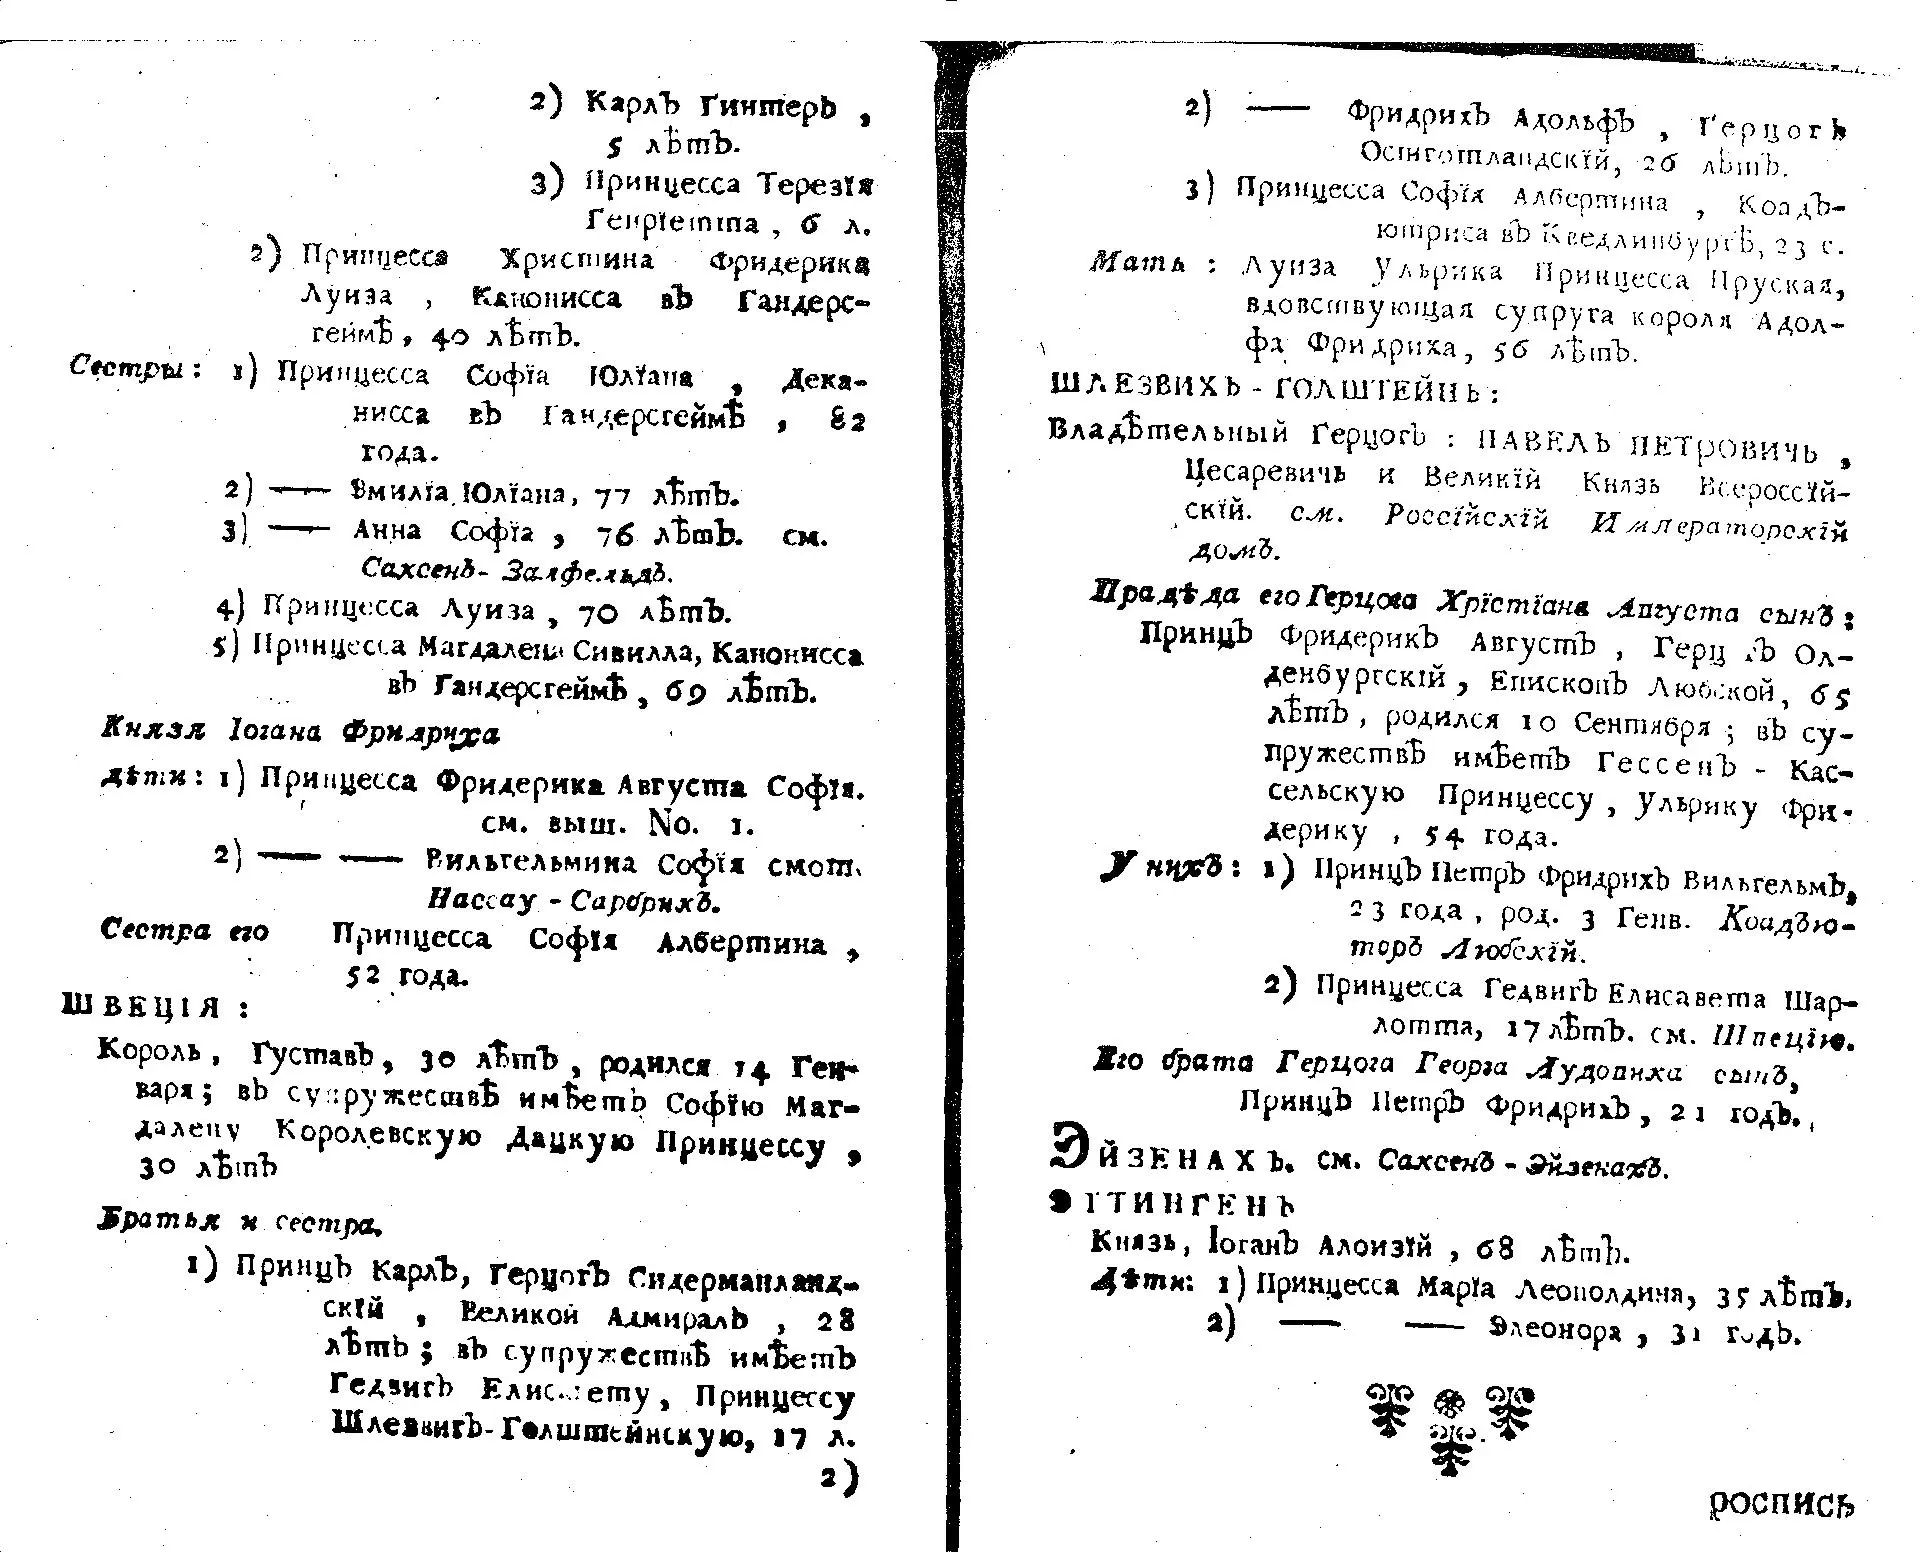 2) Карлъ Гинтеръ ,
5 лѣтъ.
3) Принцесса Терезїя
Генрїетта , 6 л.
2) Принцесса Христина Фридерика
Луиза , Канонисса въ Гандерс-
геймѣ , 40 лѣтъ.
Сестры : 1) Принцесса Софїа Юлїана , Дека-
нисса въ Гандерсгеймѣ , 82
года.
2) —— Эмилїа Юлїана, 77 лѣтъ.
3) —— Анна Софїа , 76 лѣтъ. см.
Саксенъ - Залфельдъ.
4) Принцесса Луиза , 70 лѣтъ.
5) Принцесса Магдалена Сивилла, Канонисса
въ Гандерсгеймѣ , 69 лѣтъ.
Князя Іогана Фридриха
дѣти : 1) Принцесса Фридерика Августа Софїя.
см. выш. No. 1.
2) —— —— Вильгельмина Софїя смот.
Нассау - Сарбрикъ.
Сестра его Принцесса Софїя Албертина ,
52 года.
ШВЕЦІЯ :
Король , Густавъ , 30 лѣтъ , родился 14 Ген-
варя ; въ супружествѣ имѣетъ Софїю Маг-
далену Королевскую Дацкую Принцессу ,
30 лѣтъ
Братья и сестра.
1) Принцъ Карлъ, Герцогъ Сидерманланд-
скїй , Великой Адмиралъ , 28
лѣтъ ; въ супружествѣ имѣетъ
Гедвигъ Елисавету , Принцессу
Шлезвигъ-Голштейнскую, 17 л.
2)
2) —— Фридрихъ Адольфъ , Герцогъ
Остготландскїй, 26 лѣтъ.
3) Принцесса Софїя Албертина , Коадъ-
ютриса въ Кведлинбургѣ, 23 г.
Мать : Луиза Ульрика Принцесса Пруская,
вдовствующая супруга короля Адол-
фа Фридриха, 56 лѣтъ.
ШЛЕЗВИХЪ - ГОЛШТЕЙНЬ :
Владѣтельный Герцогъ : ПАВЕЛЪ ПЕТРОВИЧЬ ,
Цесаревичь и Великїй Князь Всероссїй-
скїй. см. Россїйскїй Императорскїй
домъ.
Прадѣда его Герцога Хрїстїана Августа сынъ :
Принцъ Фридерикъ Августъ , Герцогъ Ол-
денбургскїй , Епископъ Любской, 65
лѣтъ , родился 10 Сентября ; въ су-
пружествѣ имѣетъ Гессенъ - Кас-
сельскую Принцессу , Ульрику Фри-
дерику , 54 года.
У нихъ : 1) Принцъ Петръ Фридрихъ Вильгельмъ,
23 года , род. 3 Генв. Коадъю-
торъ Любскїй.
2) Принцесса Гедвигъ Елисавета Шар-
лотта, 17 лѣтъ. см. Швецїю.
Его брата Герцога Георга Лудовиха сынъ,
Принцъ Петръ Фридрихъ , 21 годъ.
ЭЙЗЕНАХЪ. см. Саксенъ - Эйзенахъ.
ЭТТИНГЕНЪ
Князь, Іоганъ Алоизїй , 68 лѣтъ.
Дѣти: 1) Принцесса Марїа Леополдина, 35 лѣтъ.
2) —— —— Элеонора , 31 годъ.
РОСПИСЬ